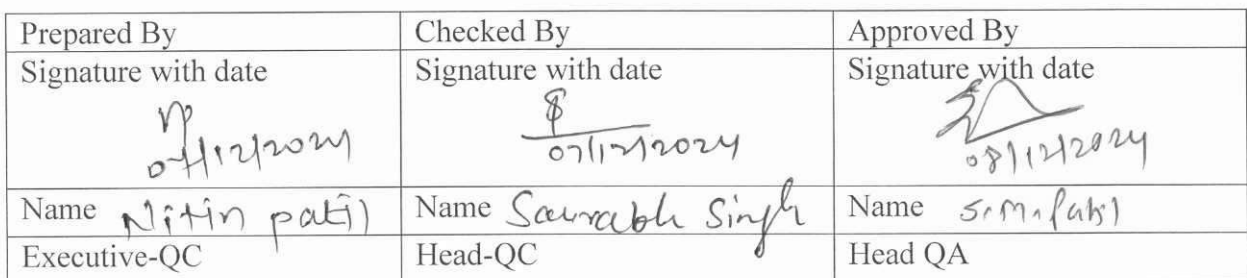 Prepared By Checked By Approved By
Signature with date Signature with date Signature with date
07/12/2024 07/12/2024 08/12/2024
Name Nitin patil Name Saurabh Singh Name S.M. Patil
Executive-QC Head-QC Head QA